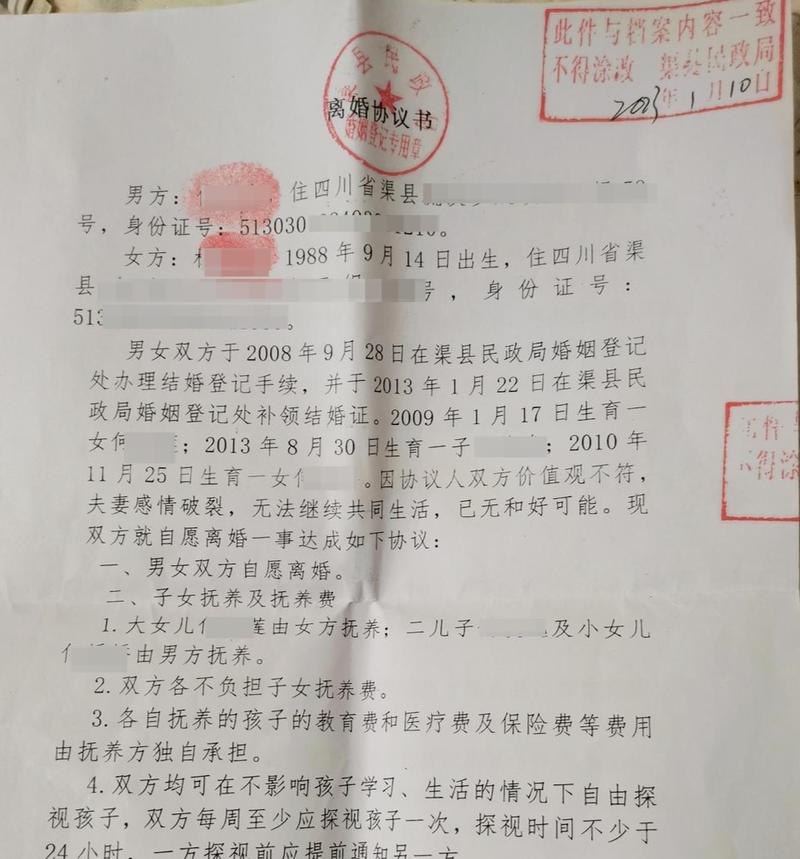 此件与档案内容一致
不得涂改 渠县民政局
2023年1月10日
离婚协议书
婚姻登记专用章
男方： ，住四川省渠县
号，身份证号：513030 。
女方： 1988年9月14日出生，住四川省渠
县 号，身份证号：
513 。
男女双方于2008年9月28日在渠县民政局婚姻登记
处办理结婚登记手续，并于2013年1月22日在渠县民
政局婚姻登记处补领结婚证。2009年1月17日生育一
女何 ；2013年8月30日生育一子 ；2010年
11月25日生育一女 。因协议人双方价值观不符，
夫妻感情破裂，无法继续共同生活，已无和好可能。现
双方就自愿离婚一事达成如下协议：
一、男女双方自愿离婚。
二、子女抚养及抚养费
1.大女儿 莲由女方抚养；二儿子 及小女儿
由男方抚养。
2.双方各不负担子女抚养费。
3.各自抚养的孩子的教育费和医疗费及保险费等费用
由抚养方独自承担。
4.双方均可在不影响孩子学习、生活的情况下自由探
视孩子，双方每周至少应探视孩子一次，探视时间不少于
24小时，一方探视前应提前通知另一方
不得涂